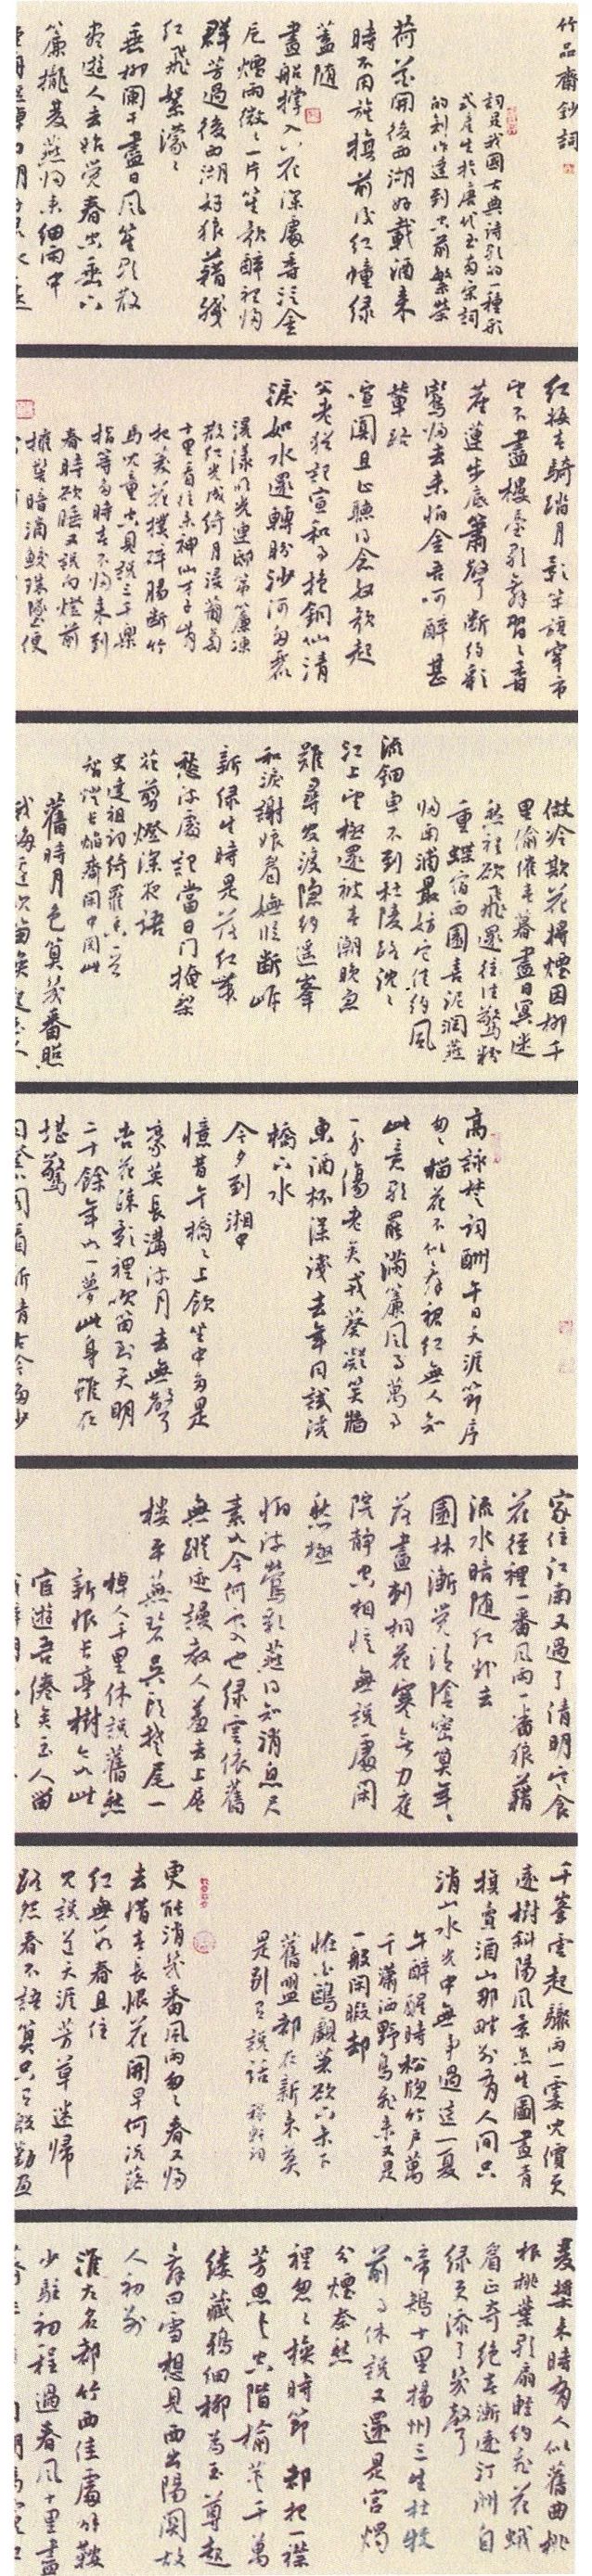 竹品齋鈔詞
詞是我國古典詩歌的一種形
式產生於唐代至南宋詞
的創作達到空前繁榮
荷花開後西湖好載酒來
時不用旌旗前後紅幢綠
蓋隨
畫船撐入花深處香泛金
卮煙雨微微一片笙歌醉裡歸
群芳過後西湖好狼藉殘
紅飛絮濛濛
垂柳闌干盡日風笙歌散
盡遊人去始覺春空垂下
簾櫳雙燕歸來細雨中
紅妝春騎踏月影竿旗穿市
望不盡樓臺歌舞習習香
塵蓮步底簫聲斷約彩
鸞歸去未怕金吾呵醉甚
輦路
喧闐且止聽得念奴歌起
父老猶記宣和事抱銅仙清
淚如水還轉盼沙河多麗
滉漾明光連邸第簾凍
散紅光成綺月浸葡萄
十里看往來神仙才子肯
把菱花撲碎腸斷竹
馬兒童空見說三千樂
指等多時春不歸來到
春時欲睡又說向燈前
擁髻暗滴鮫珠墜便
做冷欺花將煙困柳千
里偷催春暮盡日冥迷
愁裡欲飛還住驚粉
重蝶宿西園喜泥潤燕
歸南浦最妨它佳約風
流鈿車不到杜陵路沈沈
江上望極還被春潮晚急
難尋官渡隱約遙峰
和淚謝娘眉嫵臨斷岸
新綠生時是落紅帶
愁流處記當日門掩梨
花剪燈深夜語
史達祖詞綺羅香一首
舊時月色算幾番照
高詠楚詞酬午日天涯節序
匆匆榴花不似舞裙紅無人知
此意歌罷滿簾風萬事
一身傷老矣戎葵凝笑牆
東酒杯深淺去年同試澆
橋下水
今夕到湘中
憶昔午橋橋上飲坐中多是
豪英長溝流月去無聲
杏花疎影裡吹笛到天明
二十餘年如一夢此身雖在
堪驚
家住江南又過了清明寒食
花徑裡一番風雨一番狼藉
流水暗隨紅粉去
園林漸覺清陰密算年年
落盡刺桐花寒無力庭
院靜空相憶無說處閑
愁極
怕流鶯乳燕得知消息尺
素如今何處也綠雲依舊
無蹤迹謾教人羞去上層
樓平蕪碧吳頭楚尾一
棹人千里休說舊愁
新恨長亭樹今如此
宦遊吾倦矣玉人留
千峯雲起驟雨一霎兒價更
遠樹斜陽風景怎生圖畫青
旗賣酒山那畔別有人間只
消山水光中無事過這一夏
午醉醒時松窗竹戶萬
千瀟洒野鳥飛來又是
一般閑暇却
怪白鷗覷著欲下未下
舊盟都在新來莫
是別有說話
更能消幾番風雨匆匆春又歸
去惜春長恨花開早何況落
紅無數春且住
見說道天涯芳草迷歸
路怨春不語算只有殷勤畫
雙槳來時有人似舊曲桃
根桃葉歌扇輕約飛花蛾
眉正奇絕春漸遠汀洲自
綠更添了幾聲
啼鴂十里揚州三生杜牧
前事休說又還是宮燭
分煙奈愁
裡匆匆換時節都把一襟
芳思與空階榆莢千萬
縷藏鴉細柳為玉尊起
舞回雪想見西出陽關故
人初別
淮左名都竹西佳處解鞍
少駐初程過春風十里盡